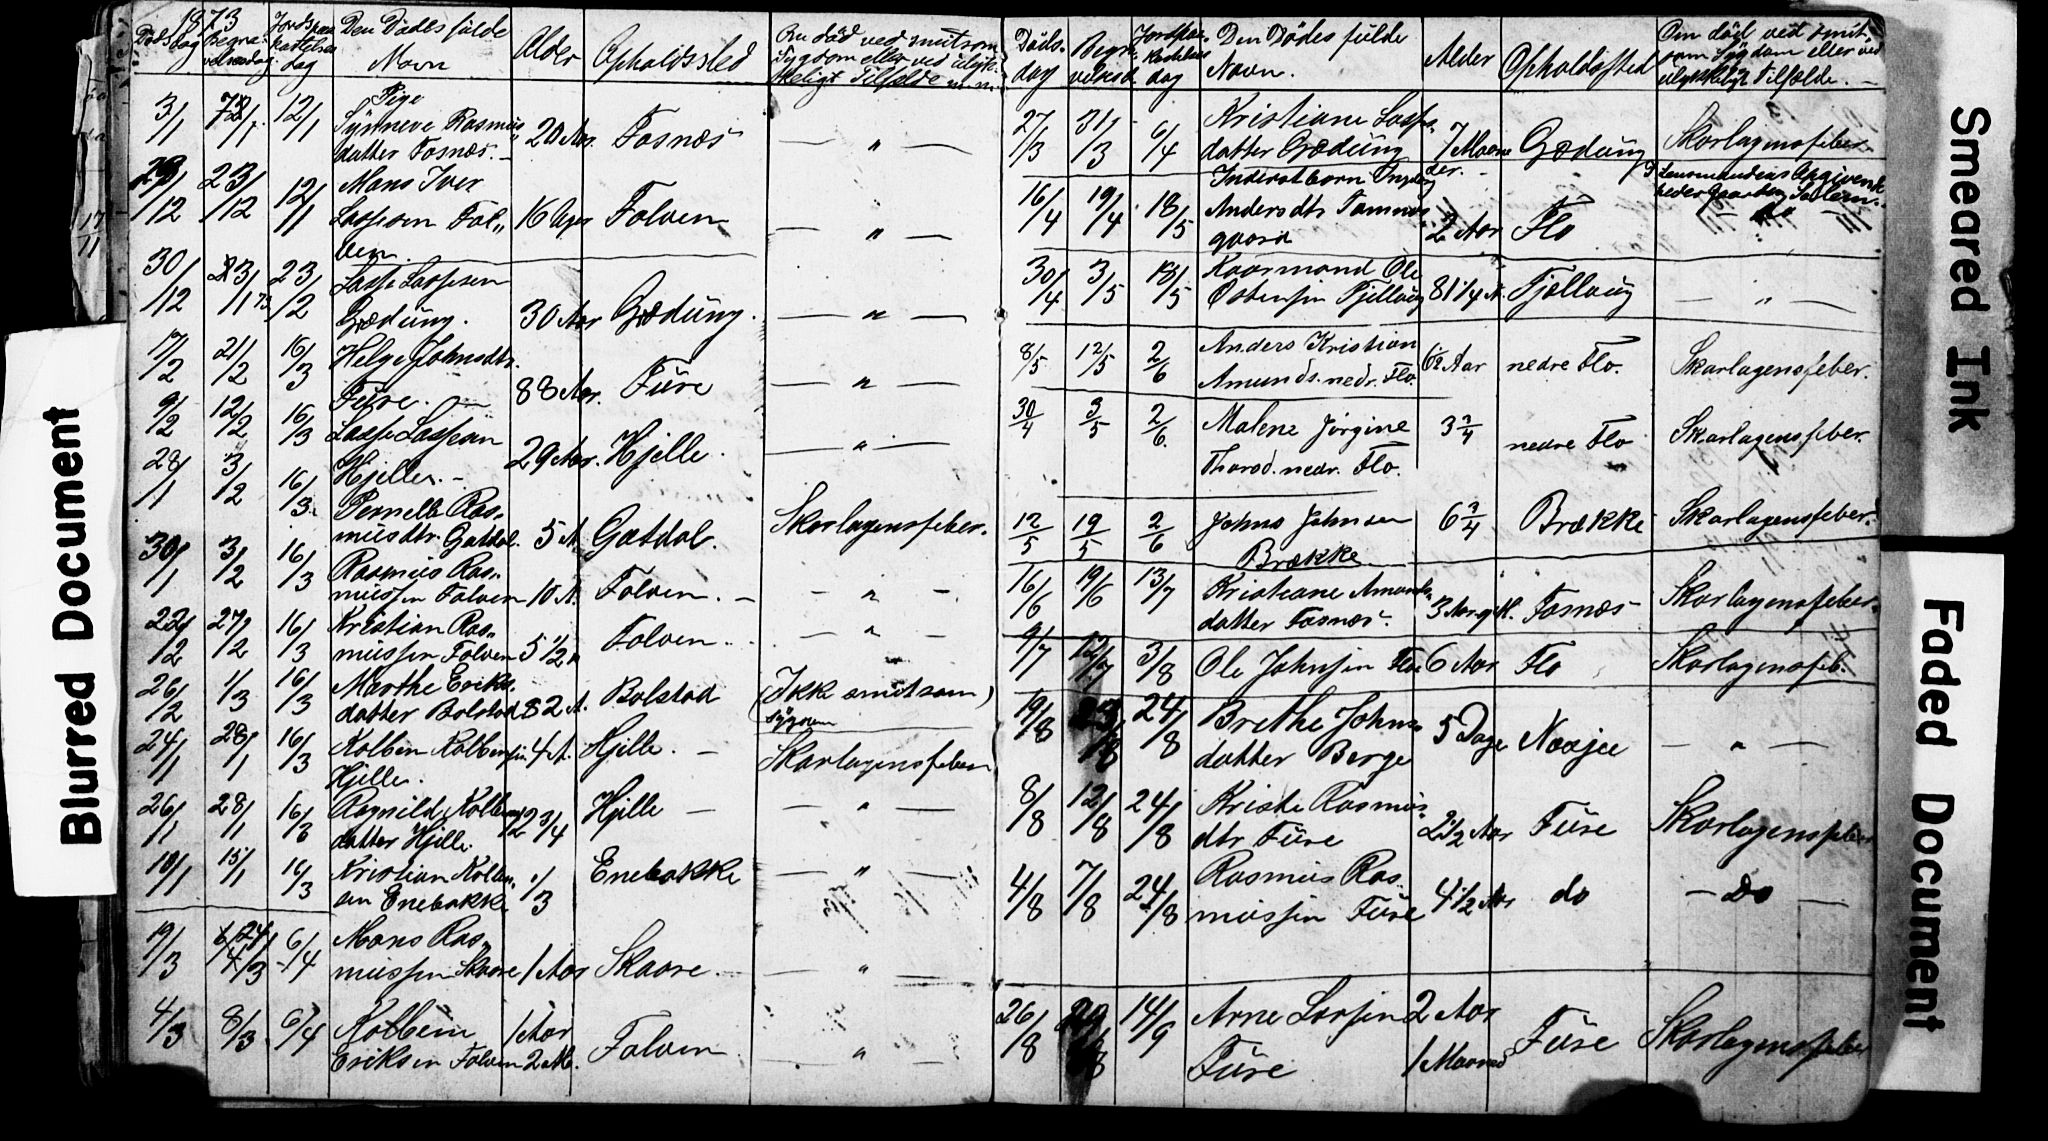 1873
Døds dag
Begra-
velsesdag
Jordspaa-
kastelses
dag
Den Dødes fulde
Navn
Alder
Opholdssted
En død ved smitsom
Sygdom eller ved ulyk-
keligt Tilfælde m.m.
3/1 7/1 12/1 Pige
Synneve Rasmus
datter Fosnæs. 20 Aar. Fosnæs — " —
12 23/12 12/1 Mons Iver
Lassesøn Fol-
ven. 16 Folven — " —
30/12 23/1 73 23/2 Lasse Lassesen
Grødung. 30 Aar Grødung. — " —
17/2 21/2 16/3 Helge Johnsdtr.
Fure. 88 Aar. Fure — " —
9/2 12/2 16/3 Lasse Lassesen
Hjelle. 29 Aar. Hjelle. — " —
28/1 3/2 16/3 Pernelle Ras-
musdtr. Gatdal. 5 A. Gatdal. Skarlagensfeber.
30/1 3/2 16/3 Rasmus Ras-
mussen Folven 10 A. Folven. — - " -
22/2 27/2 16/3 Kristian Ras-
mussen Folven 5 1/2 " Folven. - " -
26/2 1/3 16/3 Marthe Eriks-
datter Bolstad 82 A. Bolstad (Ikke smitsom)
Sygdom
24/1 28/1 16/3 Kolben Kolbensen
Hjelle. 4 A. Hjelle. — Skarlagensfeber
26/1 28/1 16/3 Ragnild Kolbens
datter Hjelle. 3/4 Hjelle — — " —
10/1 15/1 16/3 Kristian Kolben-
sen Enebakke 1/3 Enebakke — " —
19/3 24/3 6/4 Mons Ras-
mussen Skaare 1 Aar Skaare. — " —
4/3 8/3 6/4 Kolbein
Eriksen Folven 1 Aar
2 M. Folven — " —
Døds-
dag
Begra-
velsesd
Jordspaa-
kastelses
dag
Den Dødes fulde
Navn.
Alder
Opholdssted
Om død ved smit-
som Sygdom eller ved
ulykkeligt Tilfælde. —
27/3 31/3 6/4 Kristiane Lasse-
datter Grødung 7 Maane
der. Grødung Skarlagensfeber
16/4 19/4 18/5 Inderstbarn
Andersdtr Tomms
gaard 2 Aar Flo Lensmandens Opgivenk
30/4 3/5 18/5 Kaarmand Ole
Østensen Fjellaug 81 1/4 A. Fjellaug — " —
8/5 12/5 2/6 Anders Kristian
Amunds. nedr. Flo. 6 1/2 Aar nedre Flo. Skarlagensfeber.
30/4 3/5 2/6. Malene Jørgine
Thorsd. nedr. Flo. 3 3/4 nedre Flo Skarlagensfeber.
12/5 19/5 2/6 Johns Johnsen
Brække 6 3/4 Brække Skarlagensfeber.
16/6 19/6 13/7 Kristiane Amunds-
datter Fosnæs. 3 Aar 9 M. Fosnæs Skarlagensfeber.
9/7 12/7 3/8 Ole Johnsen Flo 6 Aar Flo Skarlagensfeb.
19/8 24/8 Brethe Johns-
datter Berge 5 Dage — " —
8/8 12/8 24/8 Kriste Rasmus-
dtr Fure 2 1/2 Aar Fure Skarlagensfeber
4/8 7/8 24/8 Rasmus Ras-
mussen Fure 4 1/2 Aar do — Do —
26/8 14/9 Arne Larsen
Fure 2 Aar
1 Maaned Fure Skarlagensfeber
17/11
Blurred Document
Smeared Ink
Faded Document